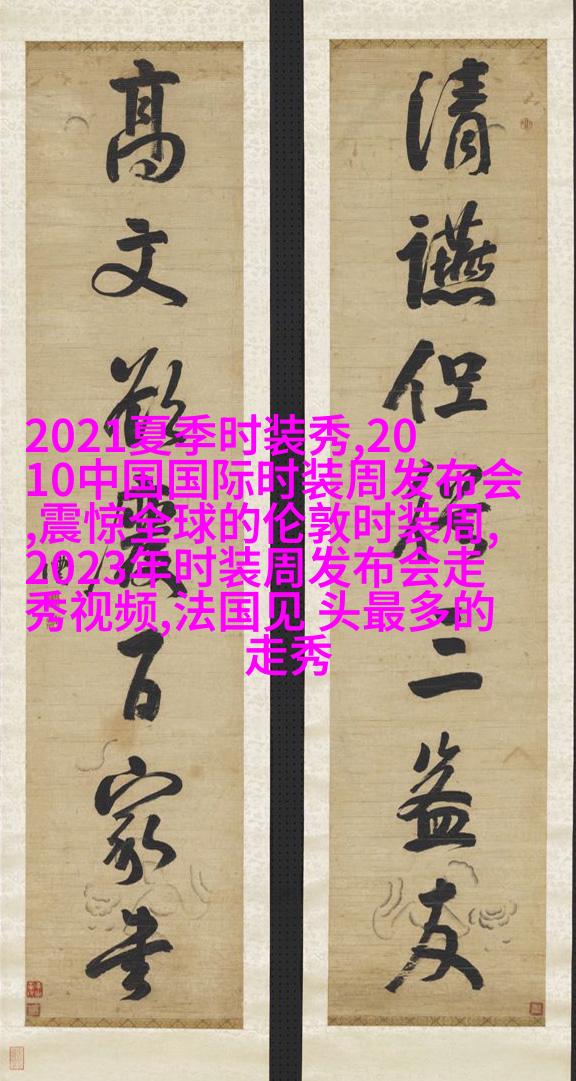 清讌但二益友
高文欲百家書
2021夏季时装秀,20
10中国国际时装周发布会
,震惊全球的伦敦时装周,
2023年时装周发布会走
秀视频,法国见 头最多的
走秀